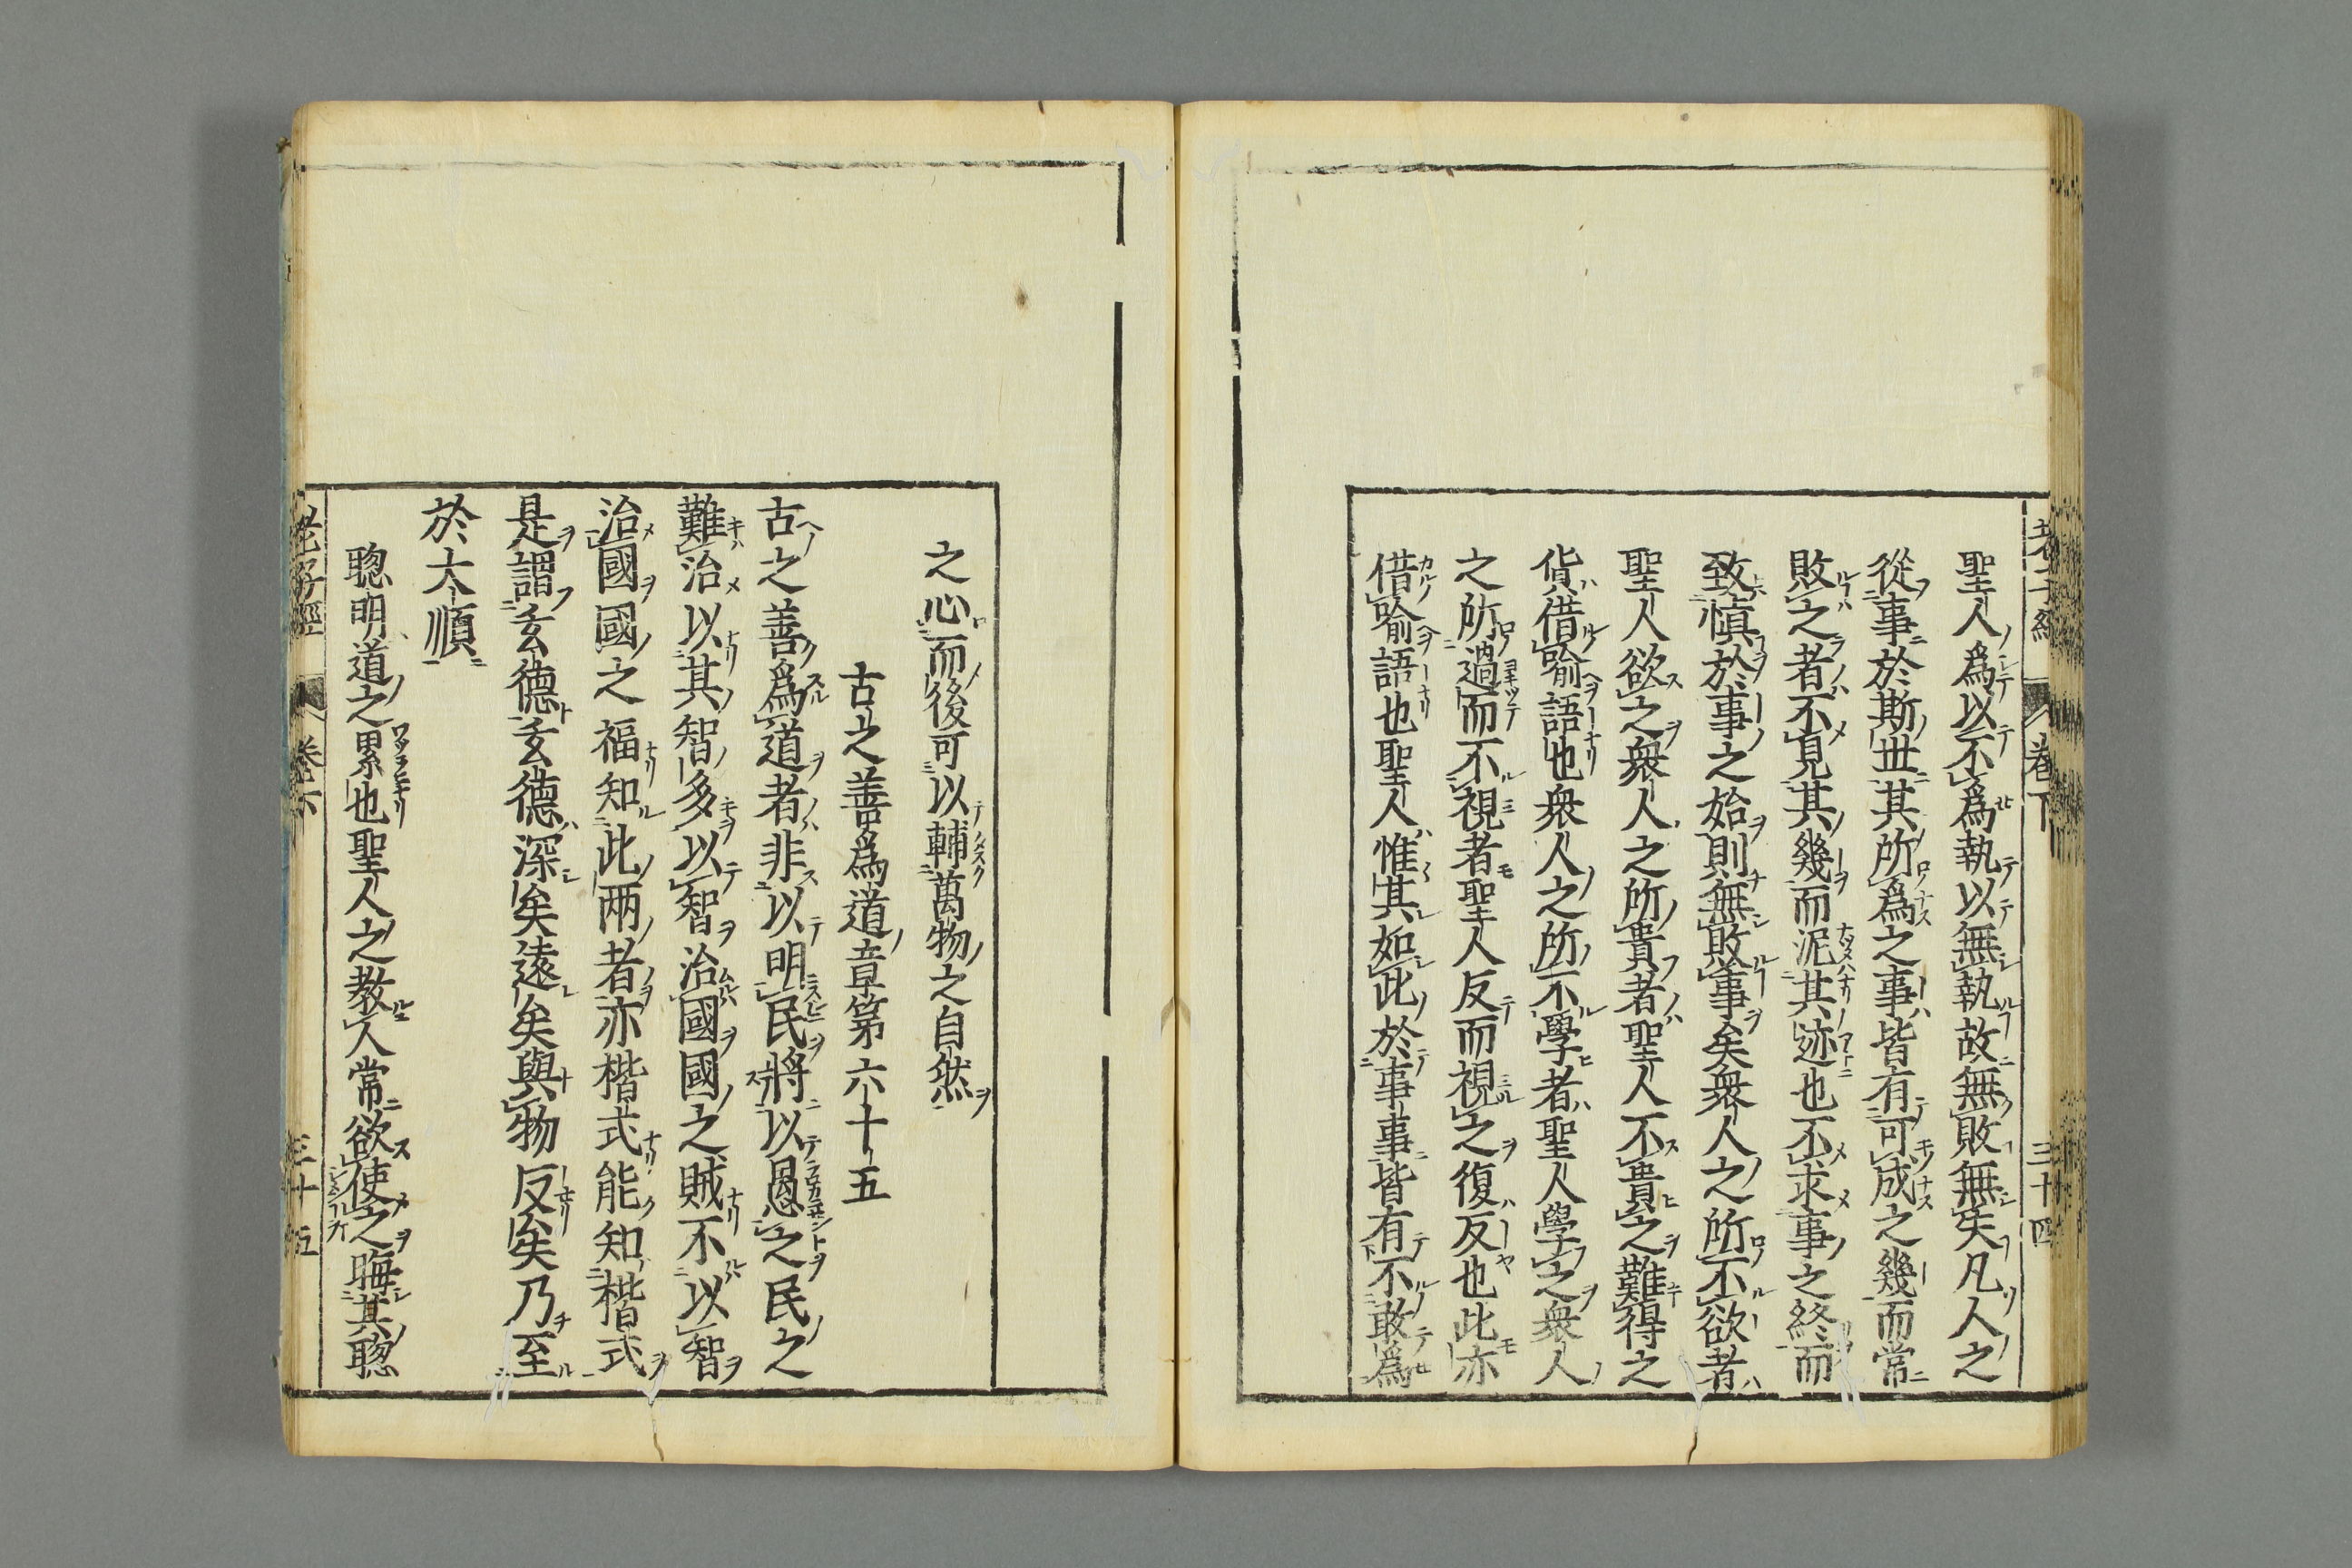 老子經 卷下 三十四
聖人爲以不爲執以無執故無敗無失凡人之
從事於斯世其所爲之事皆有可成之幾而常
敗之者不見其幾而泥其迹也不求事之終而
致愼於事之始則無敗事矣衆人之所不欲者
聖人欲之衆人之所貴者聖人不貴之難得之
貨借喩語也衆人之所不學者聖人學之衆人
之所過而不視者聖人反而視之復反也此亦
借喩語也聖人惟其如此於事事皆有不敢爲
之心而後可以輔萬物之自然
古之善爲道章第六十五
古之善爲道者非以明民將以愚之民之
難治以其智多以智治國國之賊不以智
治國國之福知此兩者亦楷式能知楷式
是謂玄德玄德深矣遠矣與物反矣乃至
於大順
聰明道之累也聖人之教人常欲使之晦其聰
老子經 三十五